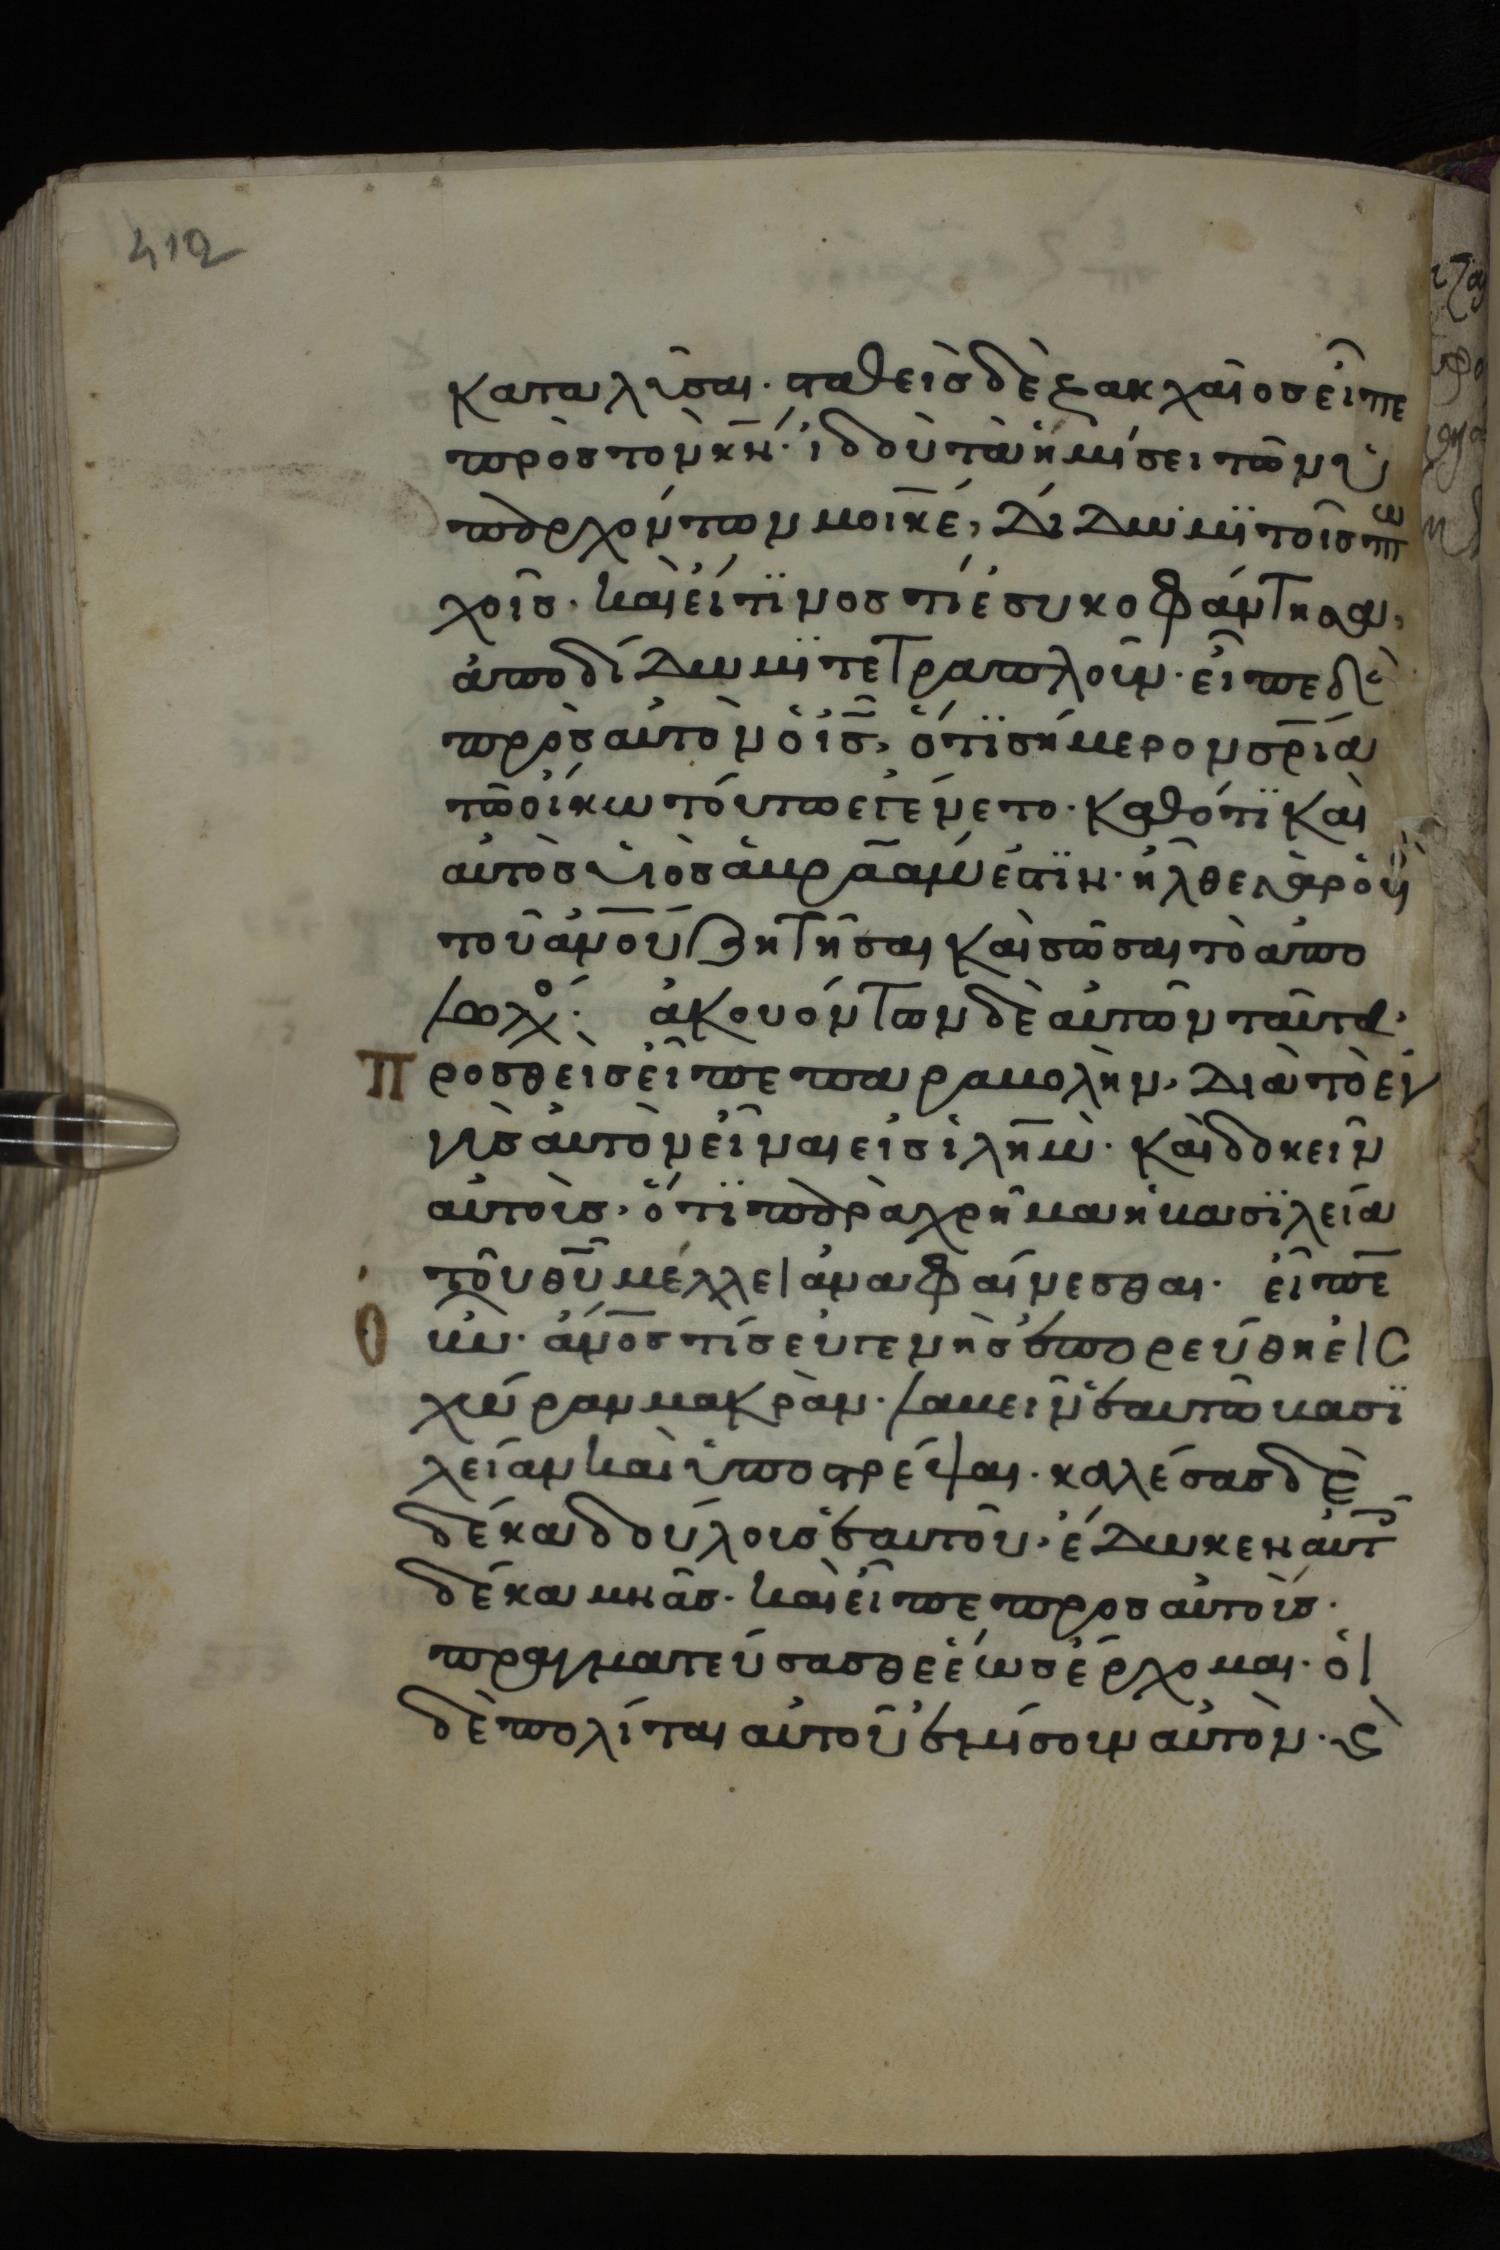 412
καταλῦσαι· σταθεὶς δὲ ζακχαῖος εἶπε
πρὸς τὸν κν̄· ἰδοὺ τὰ ἡμίσει τῶν ὑ
παρχόντων μοι κε̄, δίδωμι τοῖς πτω
χοῖς· καὶ εἴ τινος τί ἐσυκοφάντησα,
ἀποδίδωμι τετραπλοῦν· εἶπε δὲ
πρὸς αὐτὸν ὁ ις̄, ὅτι σήμερον σρ̄ία
τῶ οἴκω τούτω ἐγένετο· καθότι καὶ
αὐτὸς υἱὸς ἀβραάμ ἐστιν· ἦλθε γὰρ ὁ υς̄
τοῦ ἀνοῦ ζητῆσαι καὶ σῶσαι τὸ ἀπο
λωλός· ἀκουόντων δὲ αὐτῶν ταῦτα·
προσθεὶς εἶπε παραβολὴν, διὰ τὸ ἐγ
γὺς αὐτὸν εἶναι εἰς ιλημ̄· καὶ δοκεῖν
αὐτοὺς, ὅτι παραχρῆμα ἡ βασιλεία
τοῦ θῡ μέλλει ἀναφαίνεσθαι· εἶπεν
οὖν· ἀνος̄ τίς εὐγενὴς ἐπορεύθη εἰς
χώραν μακρὰν· λαβεῖν ἑαυτῶ βασι
λείαν καὶ ὑποστρέψαι· καλέσας δὲ
δέκα δούλους ἑαυτοῦ, ἔδωκεν αὐτοῖς
δέκα μνᾶς· καὶ εἶπε πρὸς αὐτοὺς·
πραγματεύσασθε ἕως ἔρχομαι· οἱ
δὲ πολίται αὐτοῦ ἐμίσουν αὐτὸν· καὶ